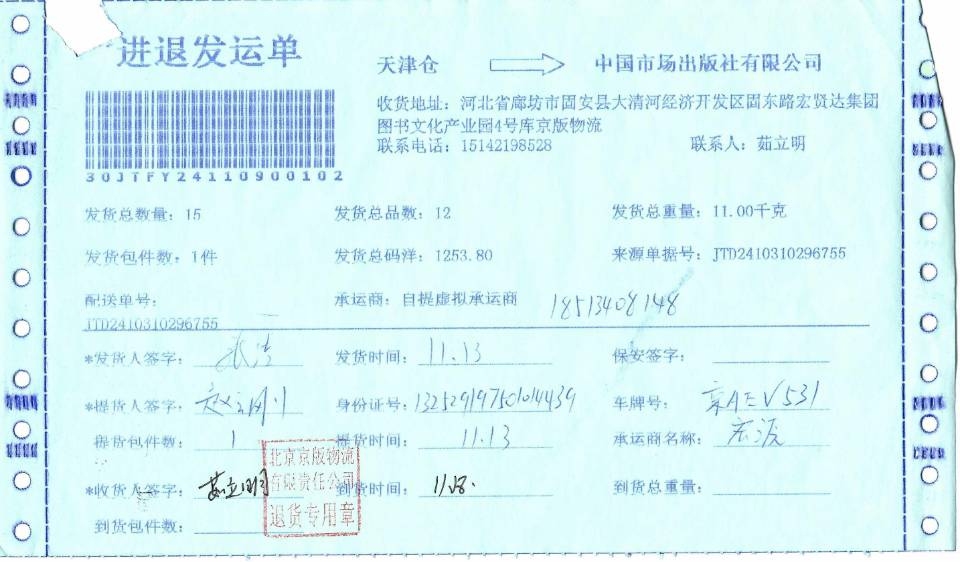 进退发运单
天津仓 中国市场出版社有限公司
收货地址：河北省廊坊市固安县大清河经济开发区固东路宏贤达集团
图书文化产业园4号库京版物流
联系电话：15142198528 联系人：茹立明
30JTFY24110900102
发货总数量：15 发货总品数：12 发货总重量：11.00千克
发货包件数：1件 发货总码洋：1253.80 来源单据号：JTD2410310296755
配送单号： 承运商：自提虚拟承运商 18513408148
JTD2410310296755
*发货人签字： 发货时间：11.13 保安签字：
*提货人签字： 身份证号：132529197501014439 车牌号：京AEV531
提货包件数：1 提货时间：11.13 承运商名称：宏源
*收货人签字：茹立明 到货时间：11.18. 到货总重量：
到货包件数：
北京京版物流
有限责任公司
退货专用章